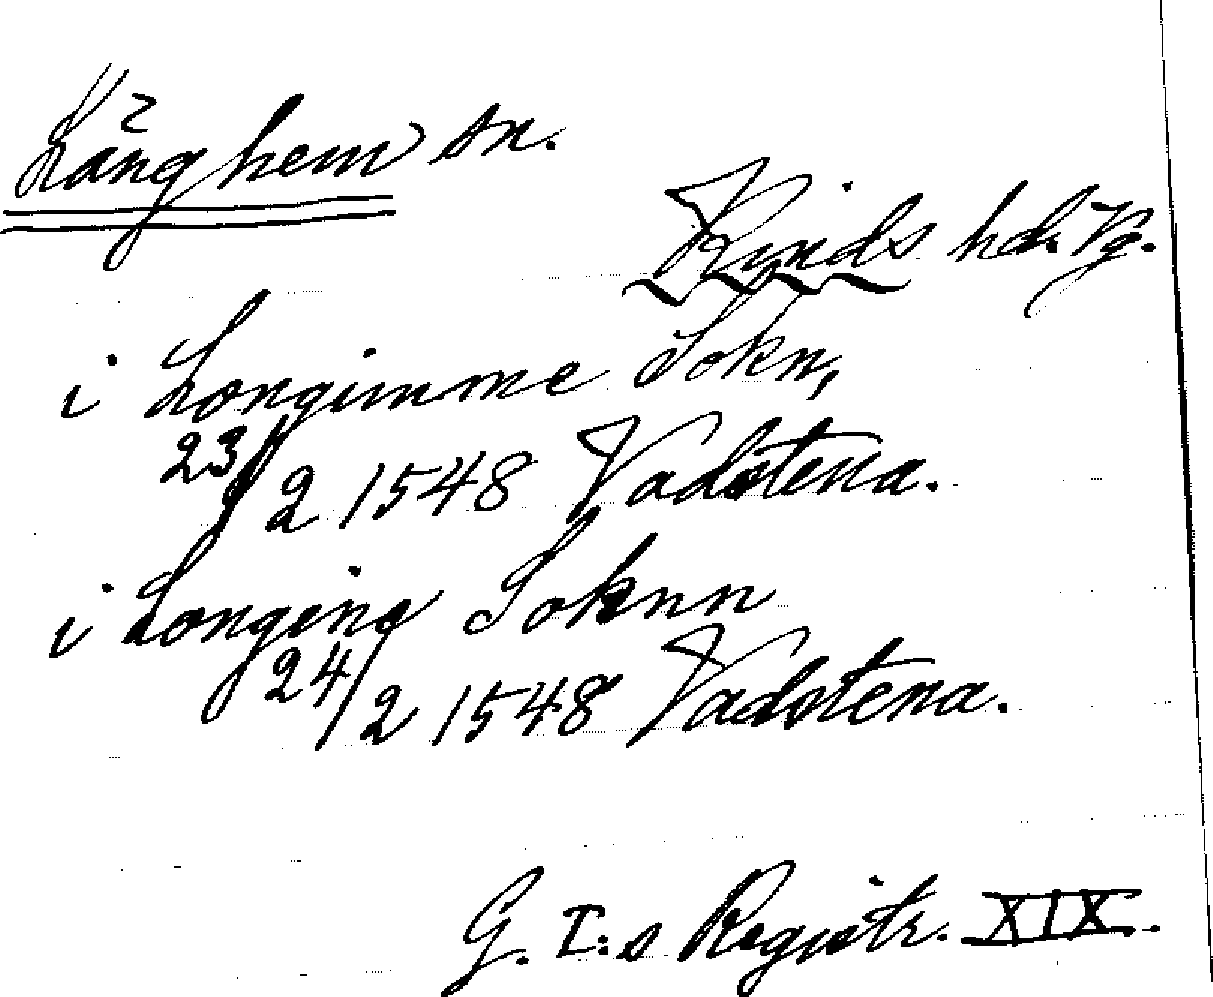 Långhem sn.
Kinds hd. Vg.
i Longimme Sokn,
23/2 1548 Vadstena.
i Longing Soknn
24/2 1548 Vadstena.
G. I:s Registr. XIX.